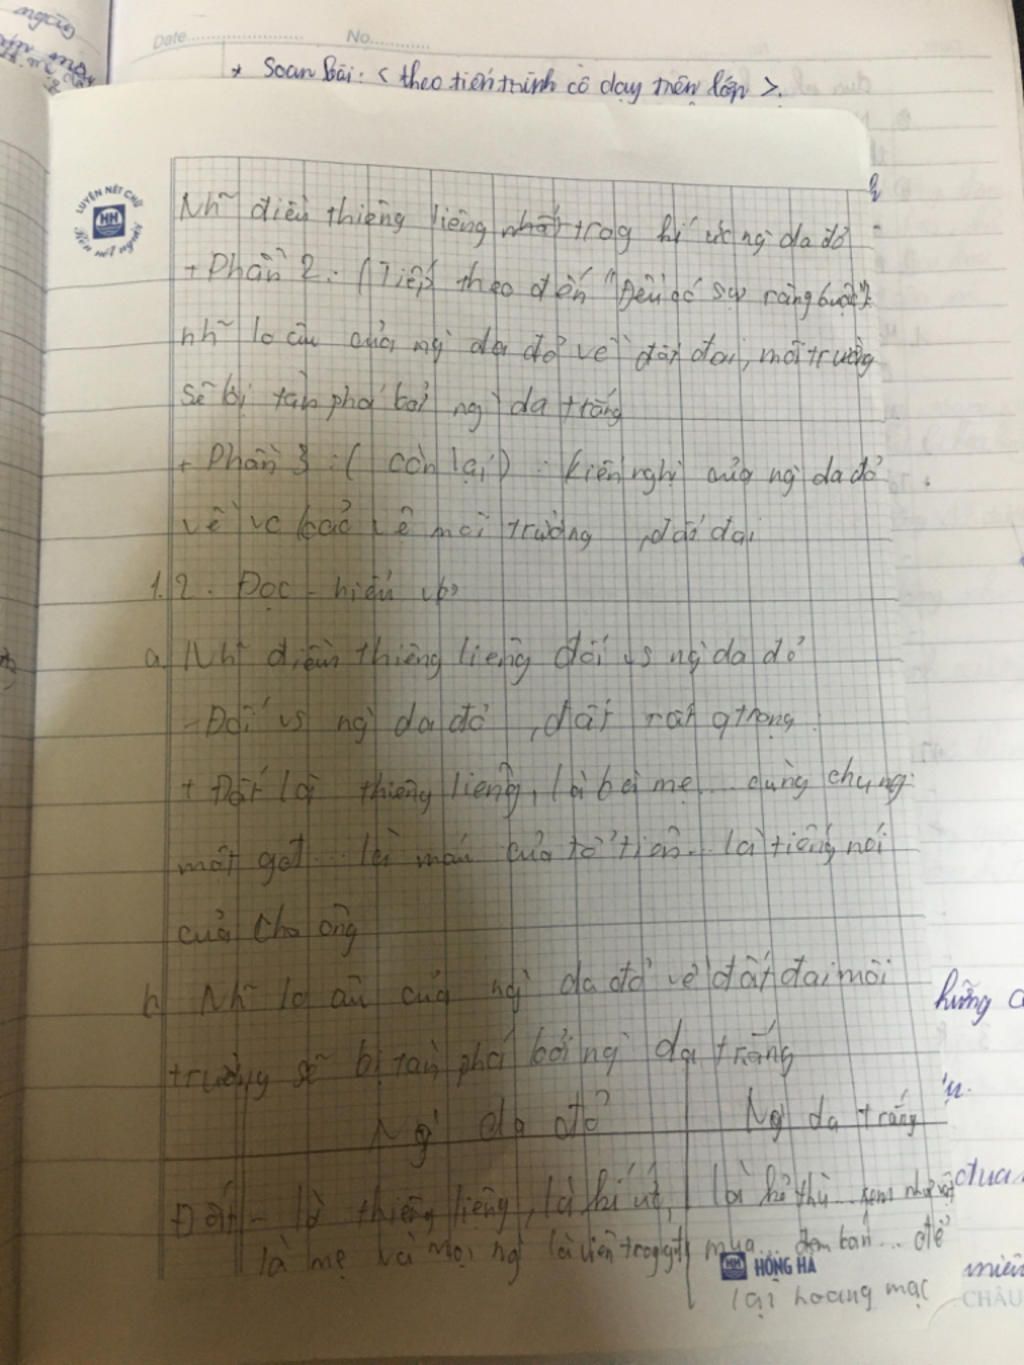 Date No
* Soạn bài: < theo tiến trình cô dạy trên lớp >.
LUYỆN NÉT CHỮ
HH
Rèn nết người
Nh~ điều thiêng liêng trog kí ức ng` da đỏ
+ Phần 2: (Tiếp theo đến "Đều có sự ràng buộc"):
nh~ lo âu của ng` da đỏ về đất đai, môi trường
sẽ bị tàn phá bởi ng` da trắng
+ Phần 3: (còn lại): kiến nghị của ng` da đỏ
về vc bảo vệ môi trường, đất đai
1.2. Đọc - hiểu vb
a. Nh~ điều thiêng liêng đối vs ng` da đỏ
- Đối vs ng` da đỏ, đất rất qtrọng
+ Đất là thiêng liêng, là bà mẹ... cùng chung
một ... là máu của tổ tiên... là tiếng nói
của cha ông
b. Nh~ lo âu của ng` da đỏ về đất đai môi
trường sẽ bị tàn phá bởi ng` da trắng
Ng` da đỏ Ng` da trắng
Đất - là thiêng liêng, là kí ức, là kẻ thù... xem như vật
là mẹ và mọi ng` là mua... đem bán... để
lại hoang mạc
HH HỒNG HÀ
miền
CHÂU